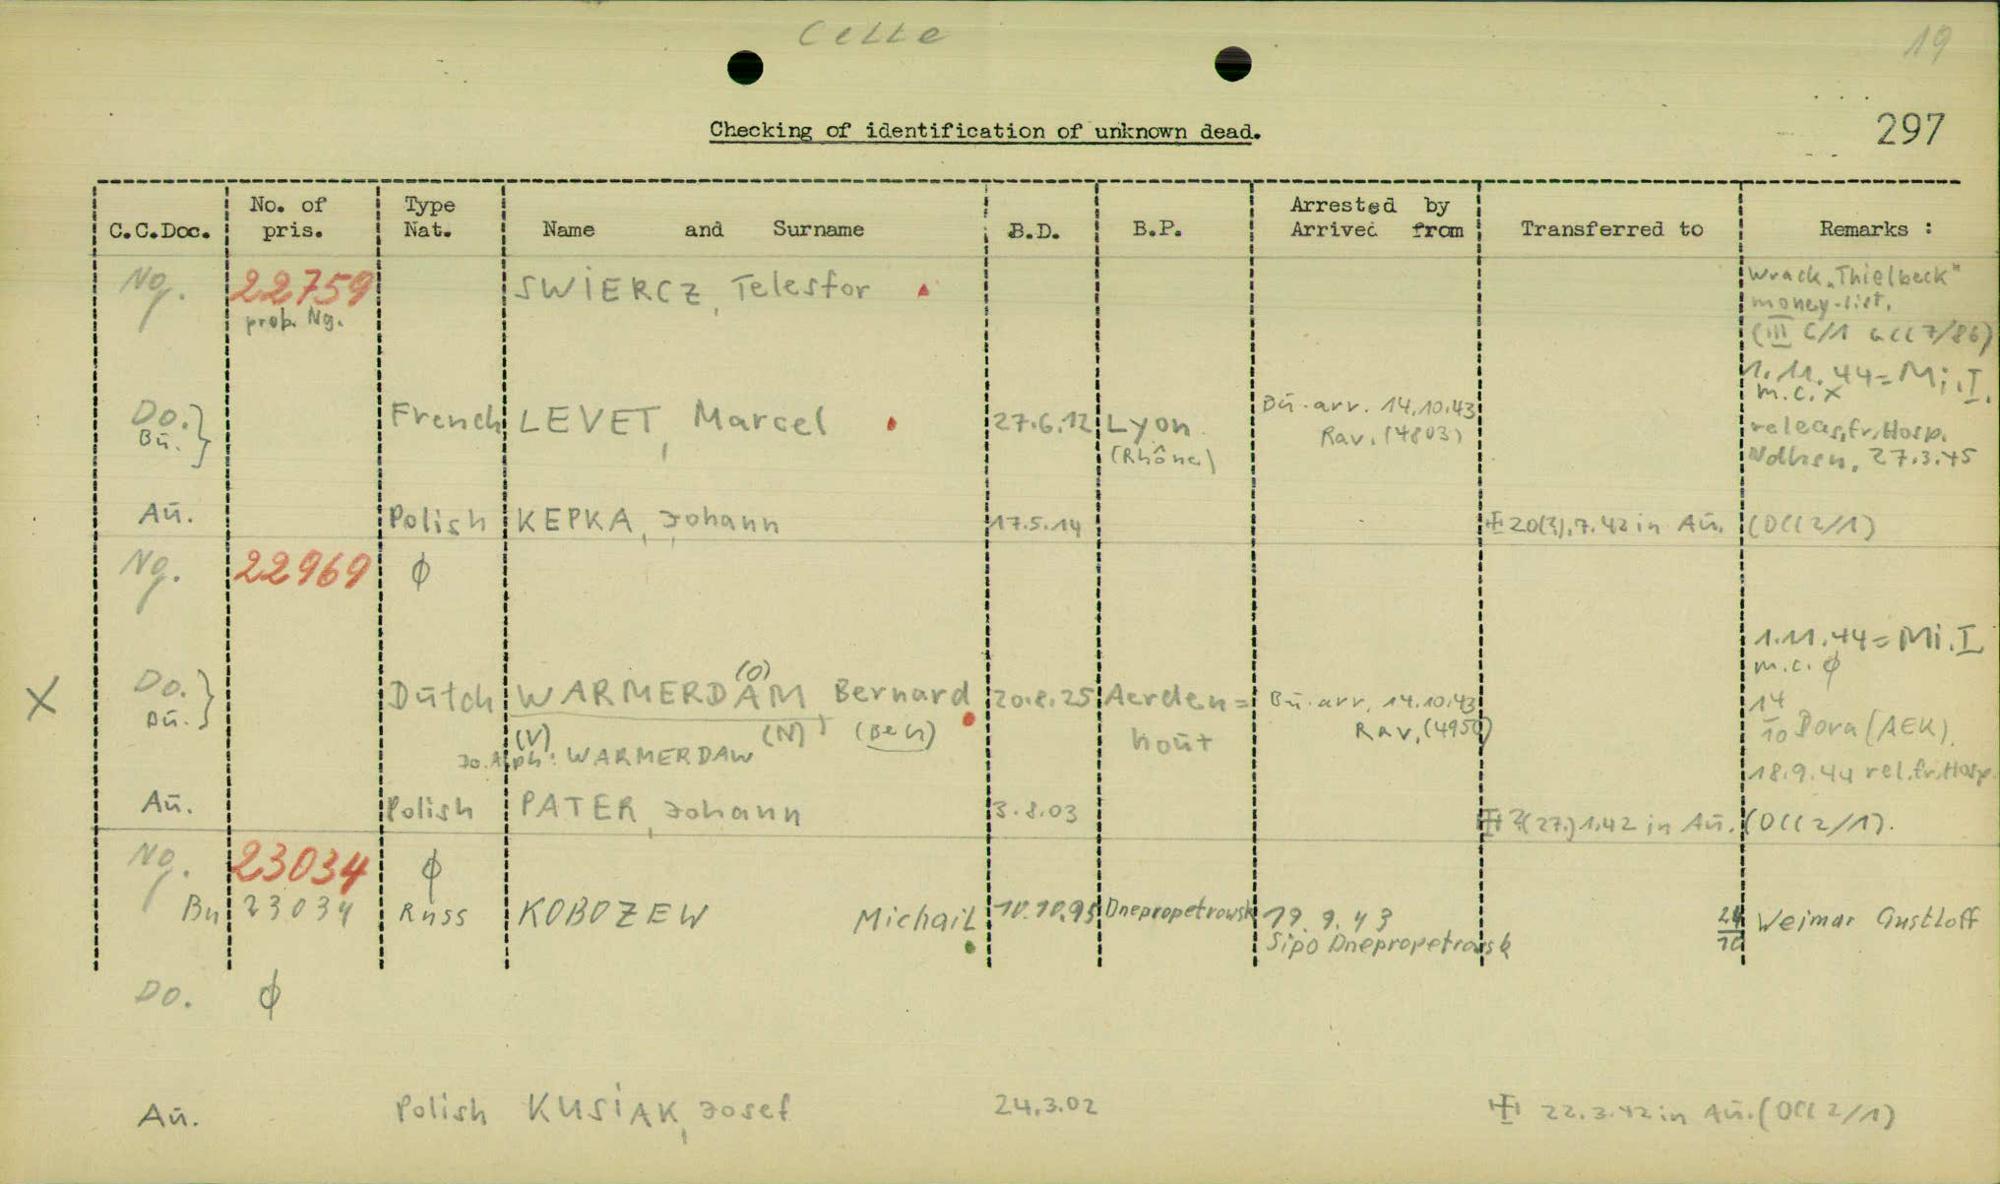 Celle
19
297
Checking of identification of unknown dead.
C.C.Doc.
No. of pris.
Type Nat.
Name and Surname
B.D.
B.P.
Arrested by
Arrived from
Transferred to
Remarks :
Ng. 22759 SWIERCZ, Telesfor Wrack „Thielbeck"
prob. Ng. money-list.
(III C/1 7/86)
1.11.44 = Mi.I.
m.c. x
Do. French LEVET, Marcel 27.6.12 Lyon Bū. arr. 14.10.43 releas.fr.Hosp.
Bū. (Rhône) Rav. (4803) Ndhsn. 27.3.45
Aū. Polish KEPKA, Johann 17.5.14 20(3).7.42 in Aū. (OCC 2/1)
Ng. 22969 ϕ
1.11.44 = Mi.I
m.c. ϕ
(O)
X Do. Dutch WARMERDAM, Bernard 20.8.25 Aerden= Bū. arr. 14.10.43 14/10 Dora (AEK).
Bū. (V) (N) hoūt Rav. (4950)
WARMERDAW
18.9.44 rel.fr.Hosp.
Aū. Polish PATER, Johann 3.8.03 ?(27.)1.42 in Aū. (OCC 2/1).
Ng. 23034 ϕ
Bu 23034 Russ KOBOZEW Michail 10.10.95 Dnepropetrowsk 19.9.43 24/10 Weimar Gustloff
Sipo Dnepropetrowsk
Do. ϕ
Aū. Polish KUSIAK, Josef 24.3.02 22.3.42 in Aū. (OCC 2/1)